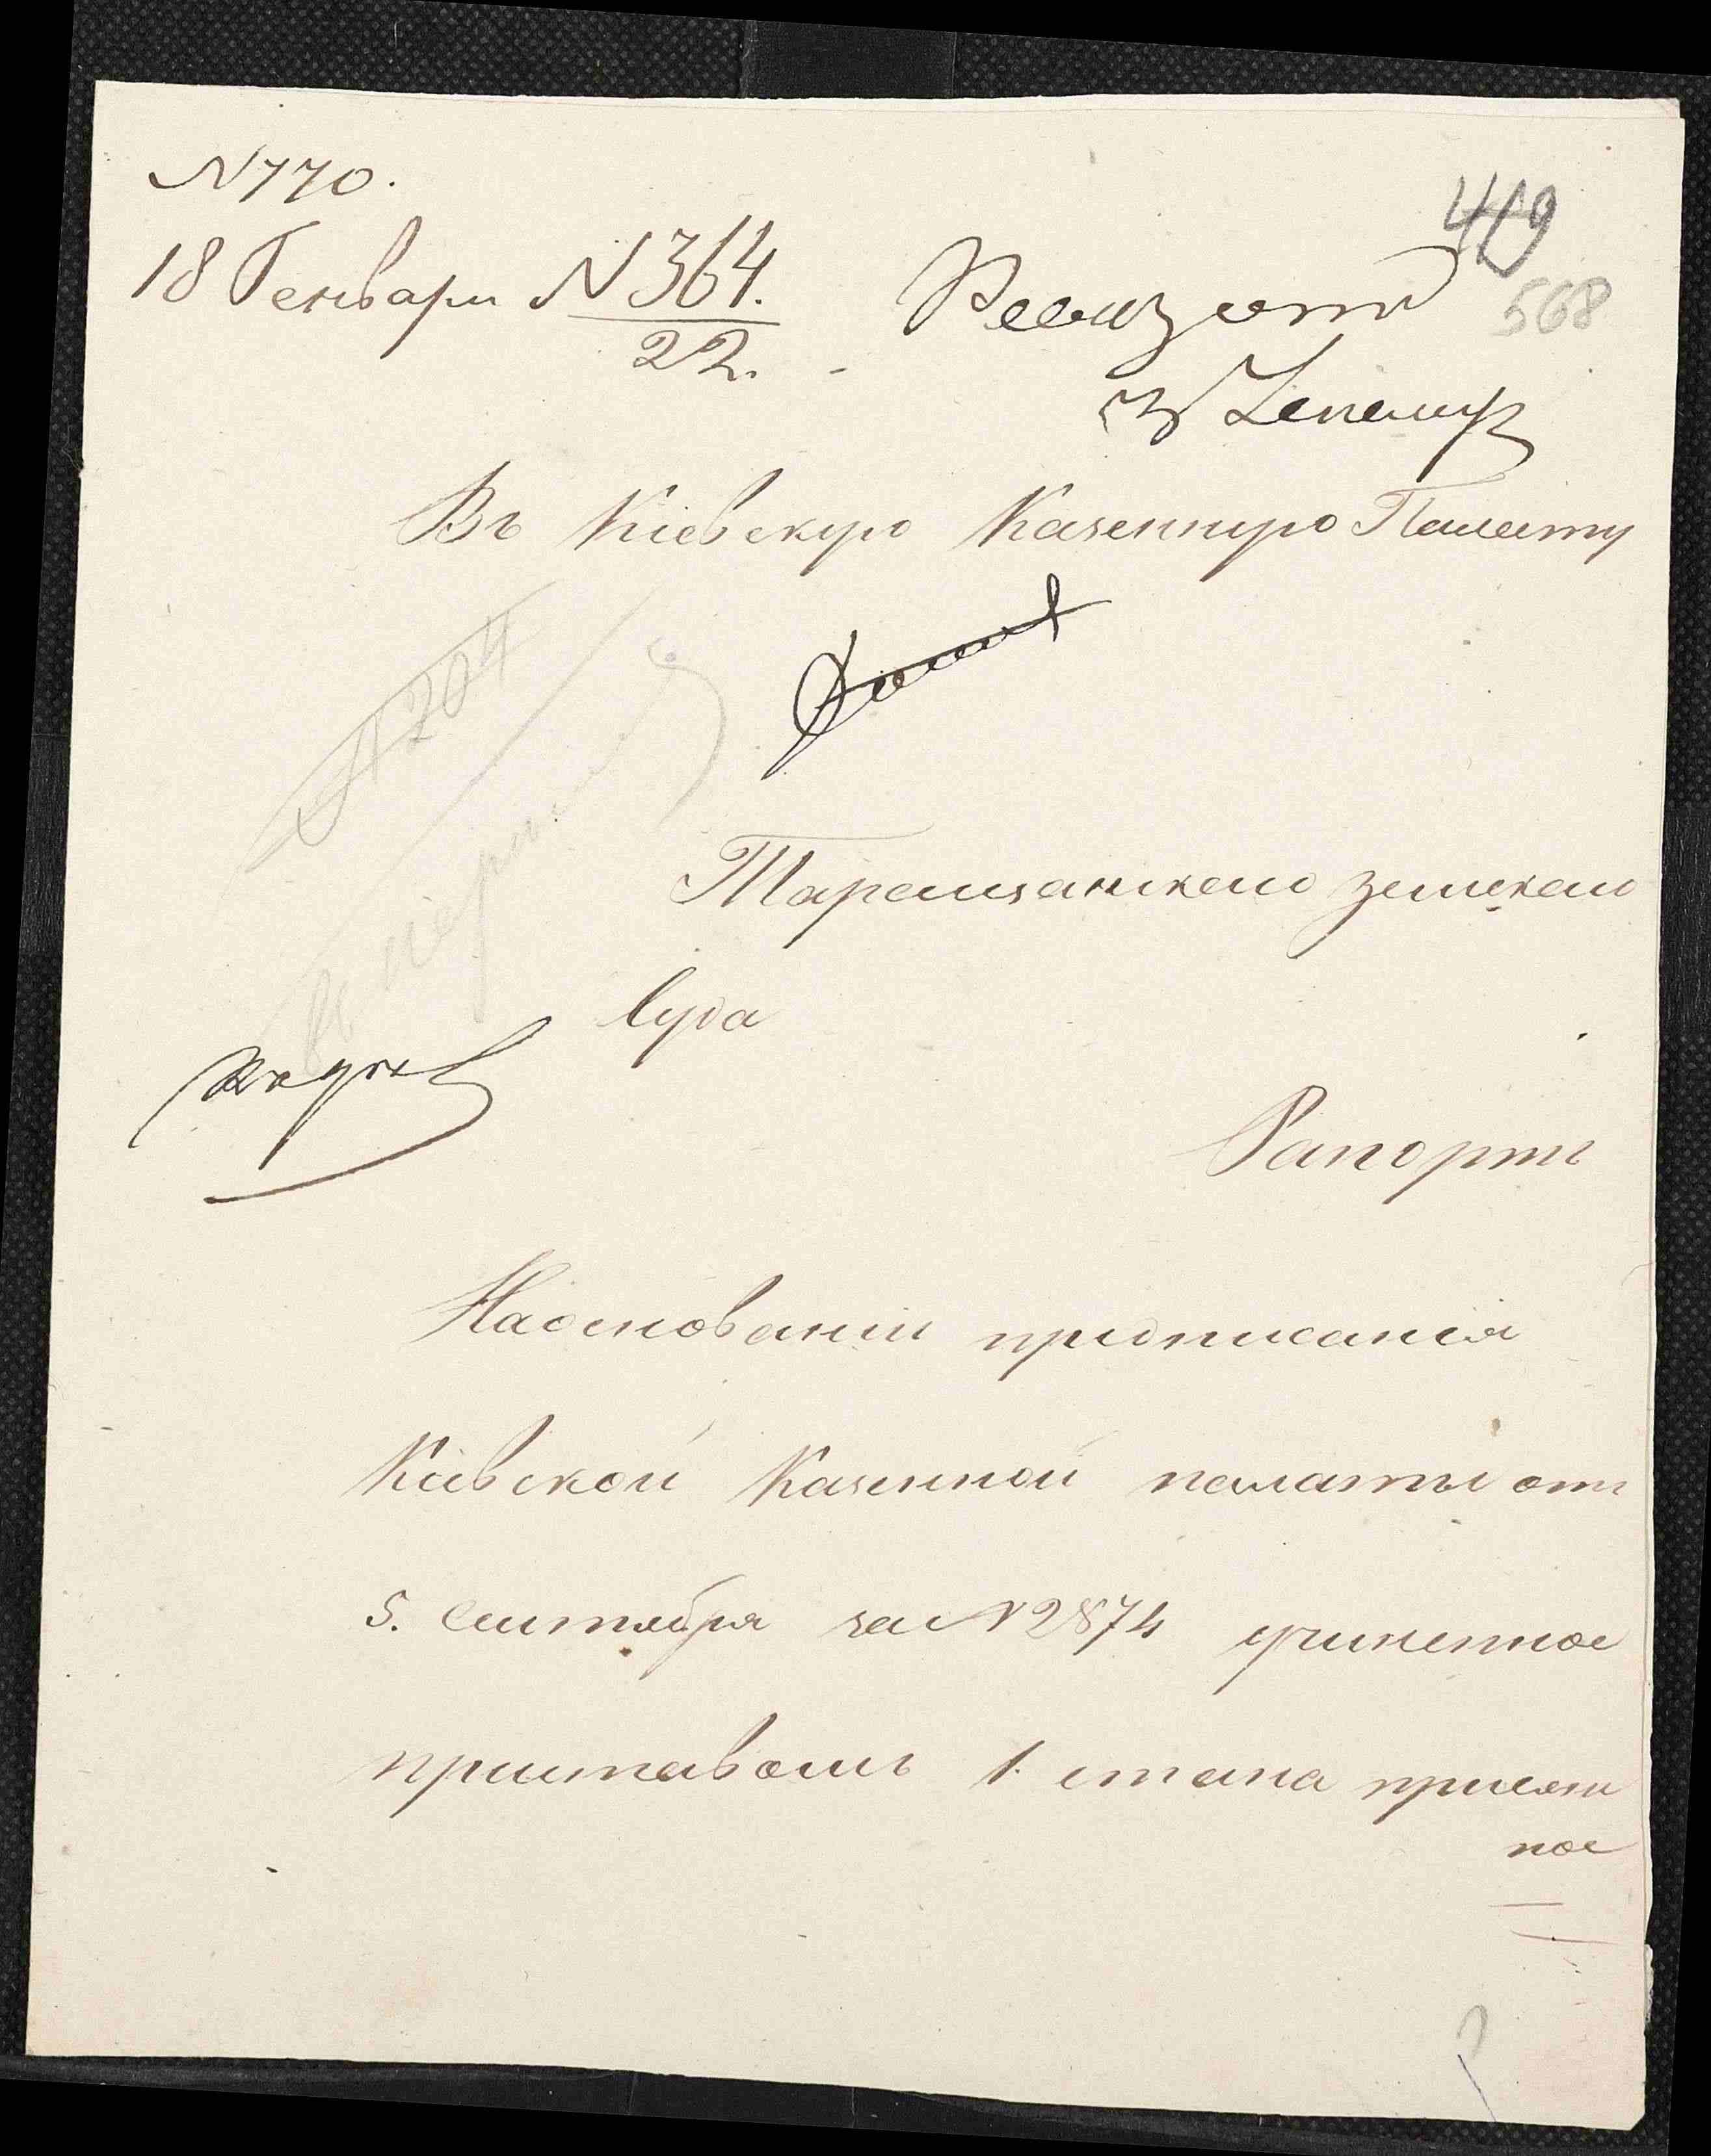 N 770.
419
18 Генваря N 364.
22.
568
Въ Кіевскую Казенную Палату
N 204
Таращанскаго земскаго
Суда
Рапортъ
Наоснованіи предписанія
Кіевской Казенной палаты отъ
5. Сентября за N 2874 учиненное
приставомъ 1. стана присяж
ное